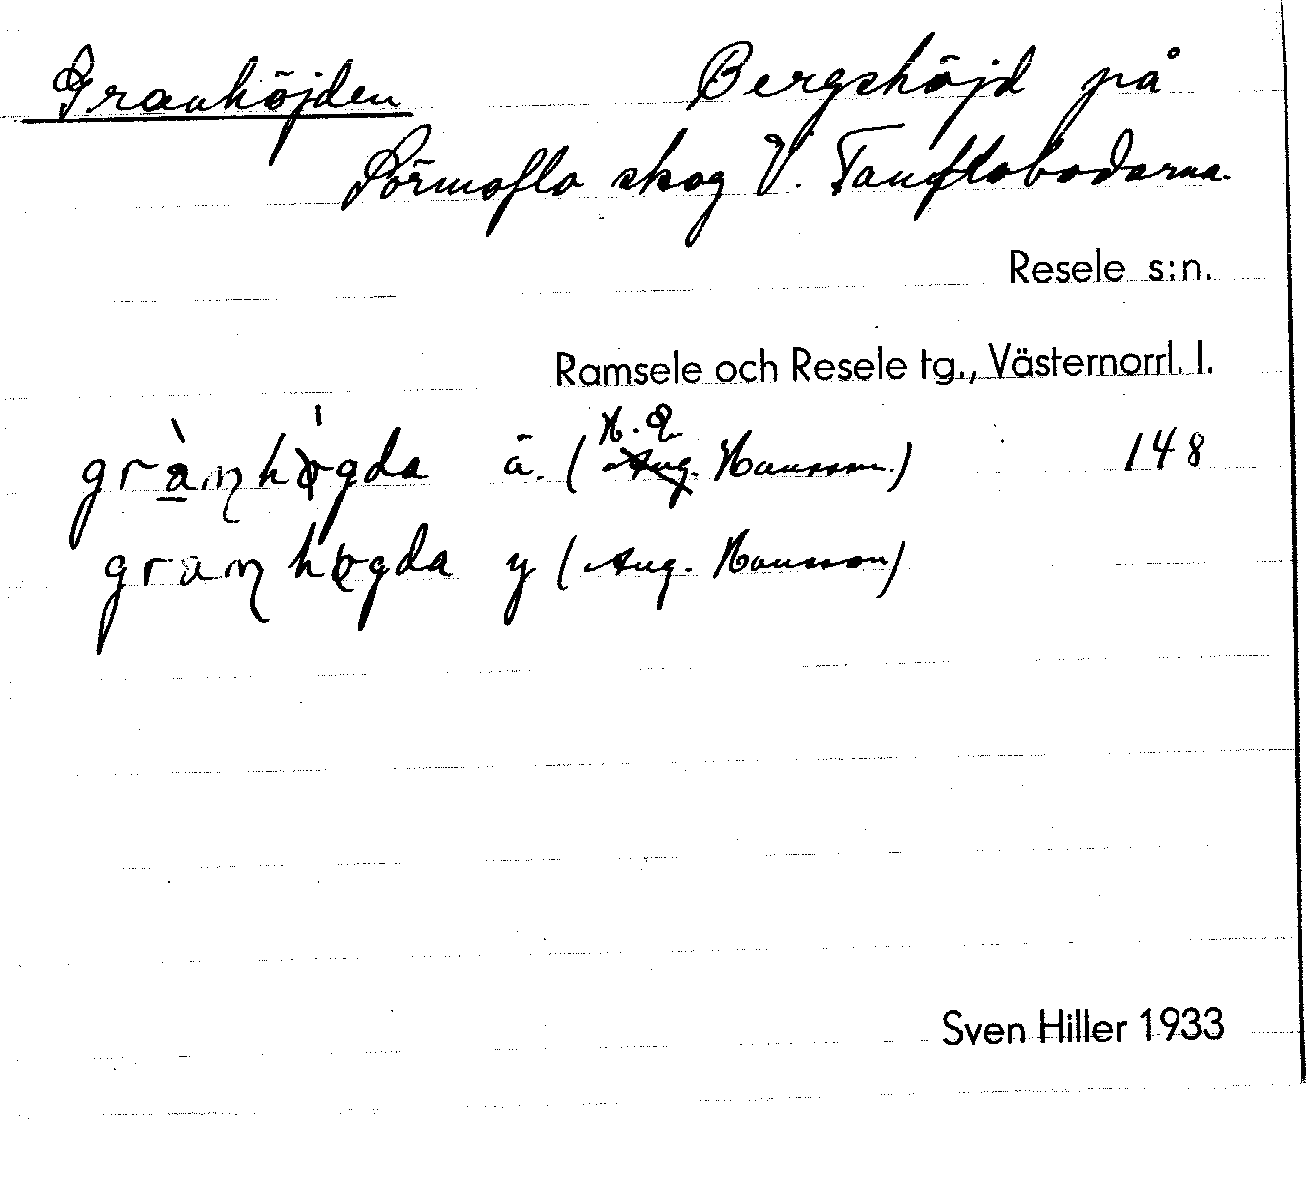 Granhöjden Bergshöjd på
Sörmoflo skog V. Tanflobodarna.
Resele s:n.
Ramsele och Resele tg., Västernorrl. l.
H. A.
gràn̡høgda ä. (Aug. Hansson.) 148
gran̡høgda y (Aug. Hansson)
Sven Hiller 1933